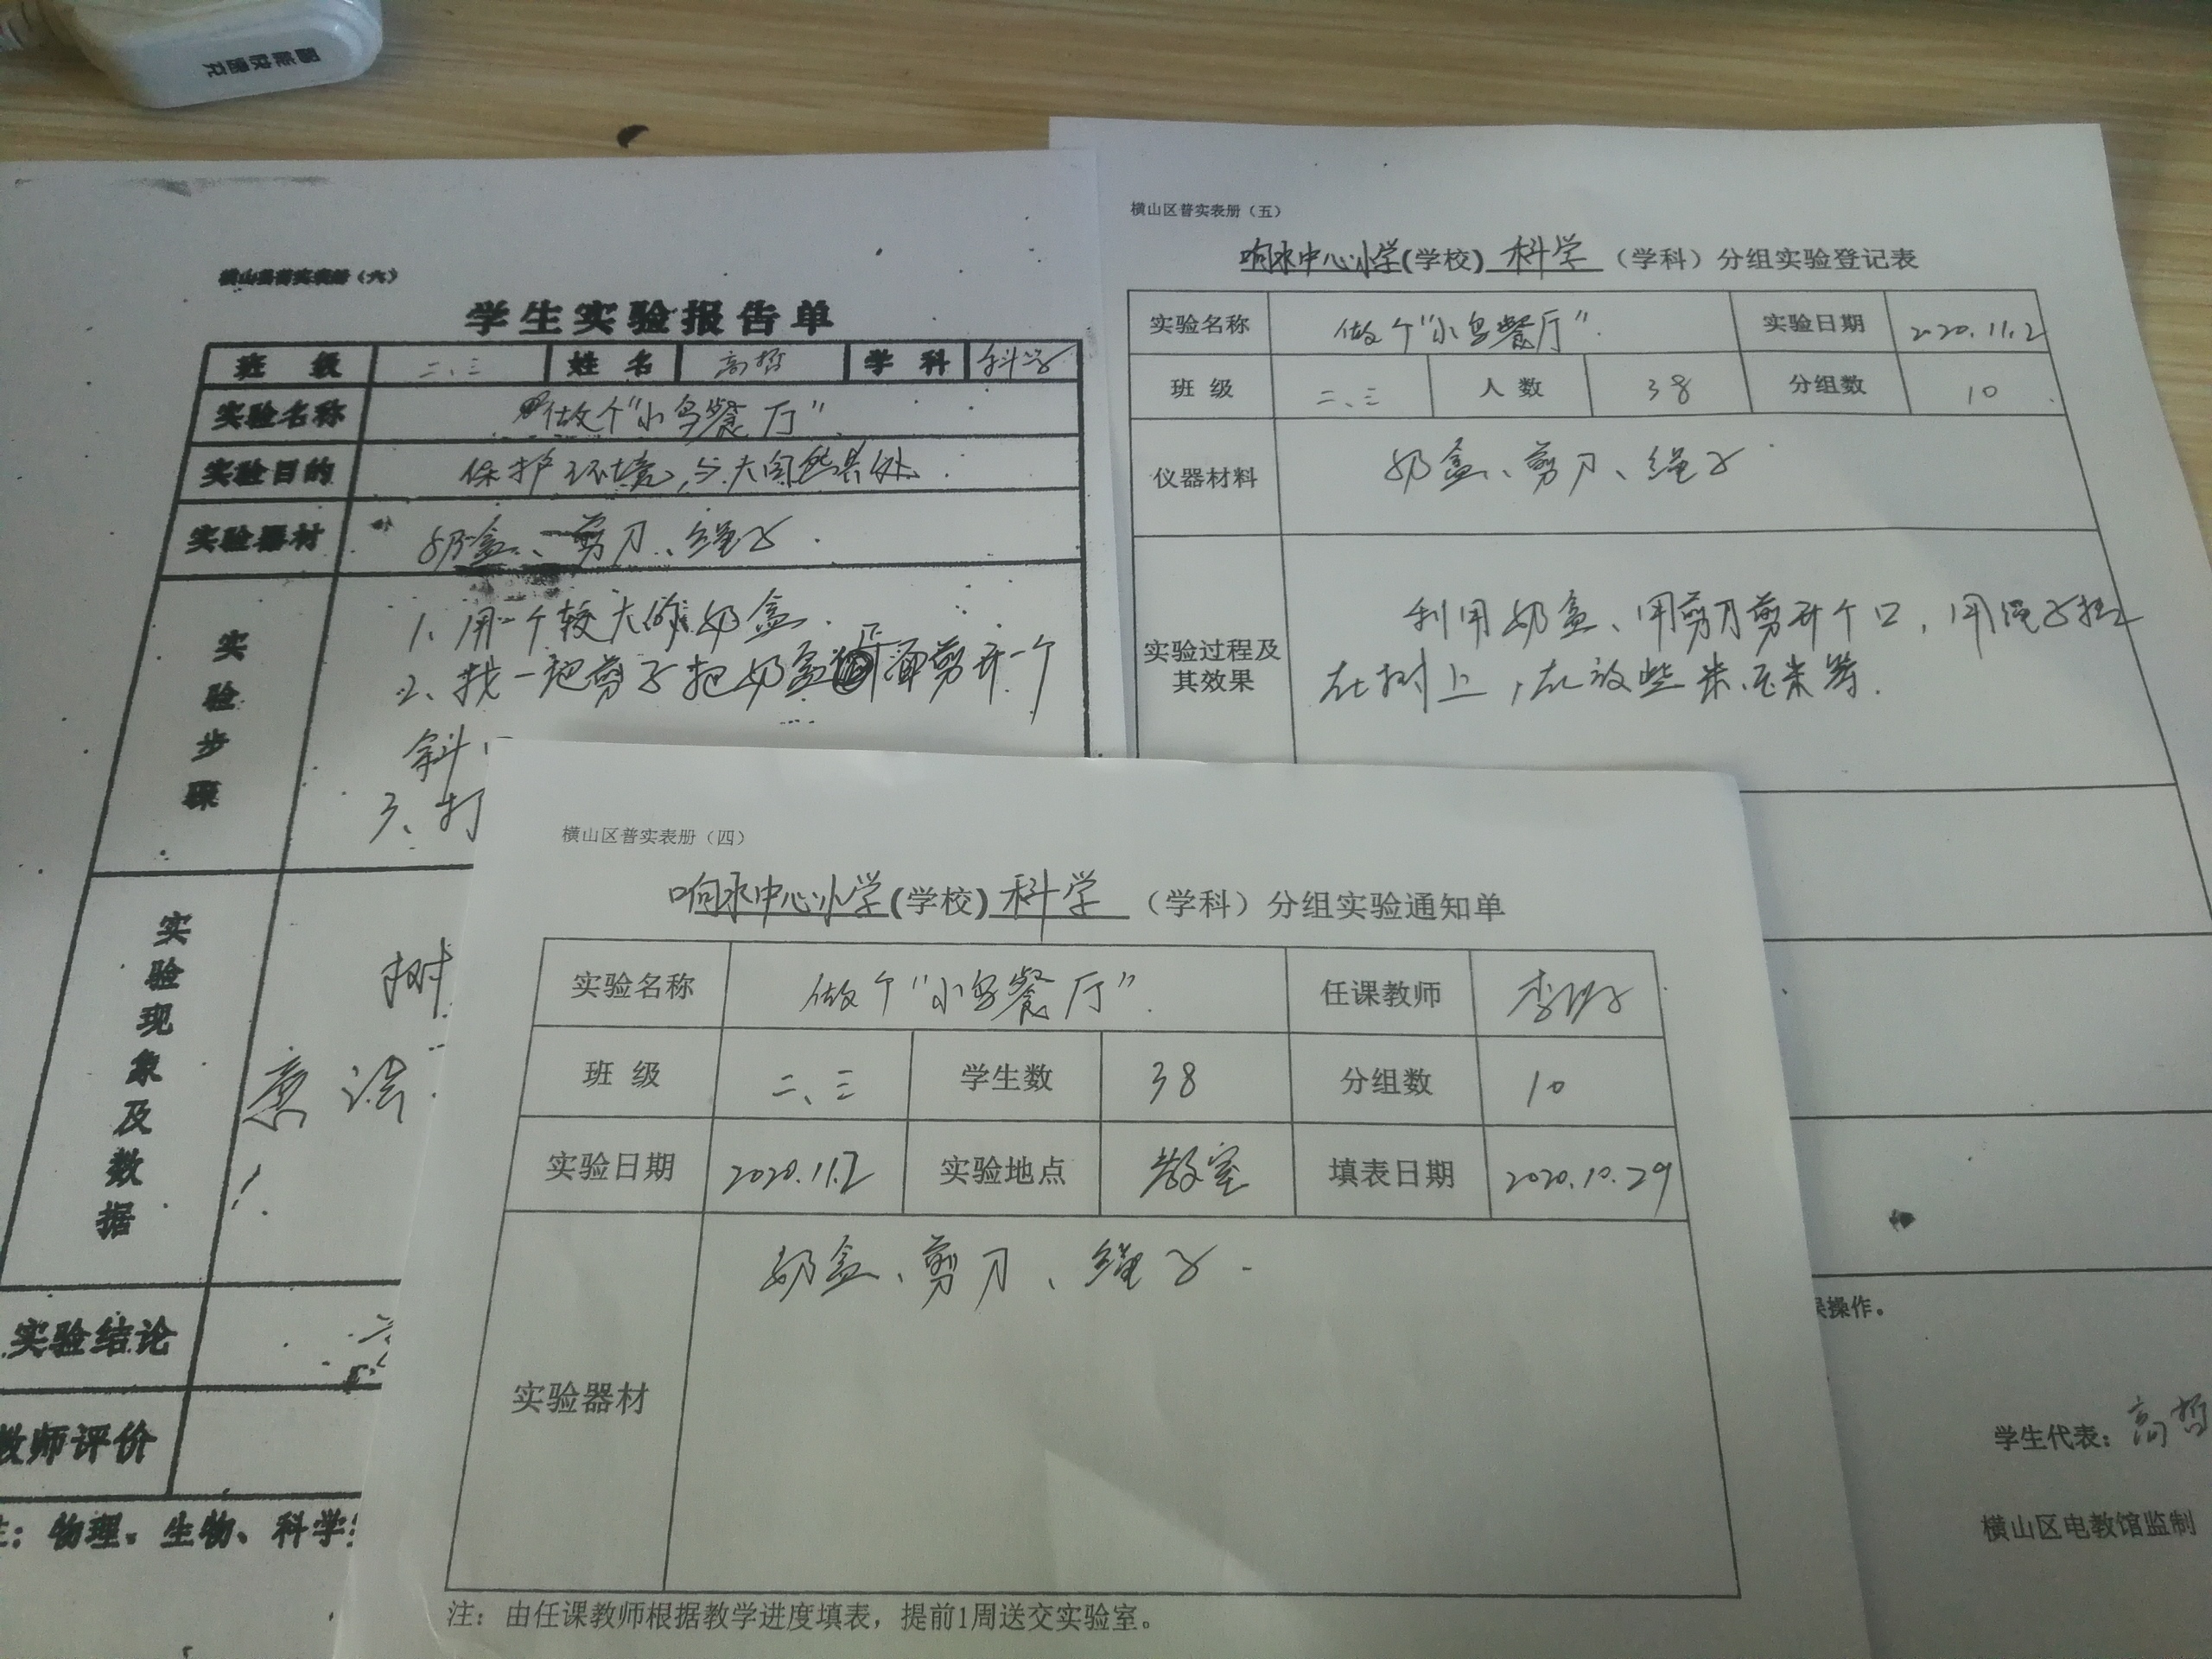 横山县普实表册（六）
学生实验报告单
班 级 二、三 姓 名 高哲 学 科 科学
实验名称 做个“小鸟餐厅”
实验目的 保护环境,与大自然共处.
实验器材 奶盒、剪刀、绳子.
实验步骤
1、用一个较大的奶盒.
2、找一把剪子把奶盒 面剪开一个
斜
3、打
实验现象及数据
树
实验结论
教师评价
物理、生物、科学
横山区普实表册（五）
响水中心小学(学校) 科学 （学科）分组实验登记表
实验名称 做个“小鸟餐厅”. 实验日期 2020.11.2
班 级 二、三 人 数 38 分组数 10
仪器材料 奶盒、剪刀、绳子
实验过程及其效果
利用奶盒、用剪刀剪开个口,用绳子挂
在树上,在放些米、玉米等.
误操作。
学生代表：高哲
横山区电教馆监制
横山区普实表册（四）
响水中心小学(学校) 科学 （学科）分组实验通知单
实验名称 做个“小鸟餐厅”. 任课教师
班 级 二、三 学生数 38 分组数 10
实验日期 2020.11.2 实验地点 教室 填表日期 2020.10.29
实验器材 奶盒、剪刀、绳子.
注：由任课教师根据教学进度填表，提前1周送交实验室。